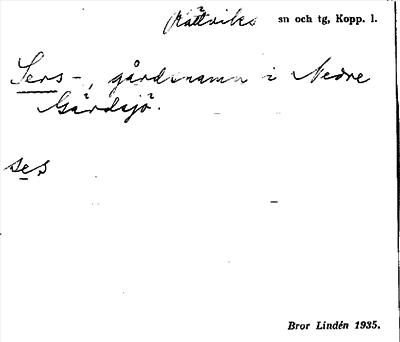 Rättviks sn och tg, Kopp. l.
Sers-, gårdsnamn i Nedre
Gärdsjö.
ses
Bror Lindén 1935.